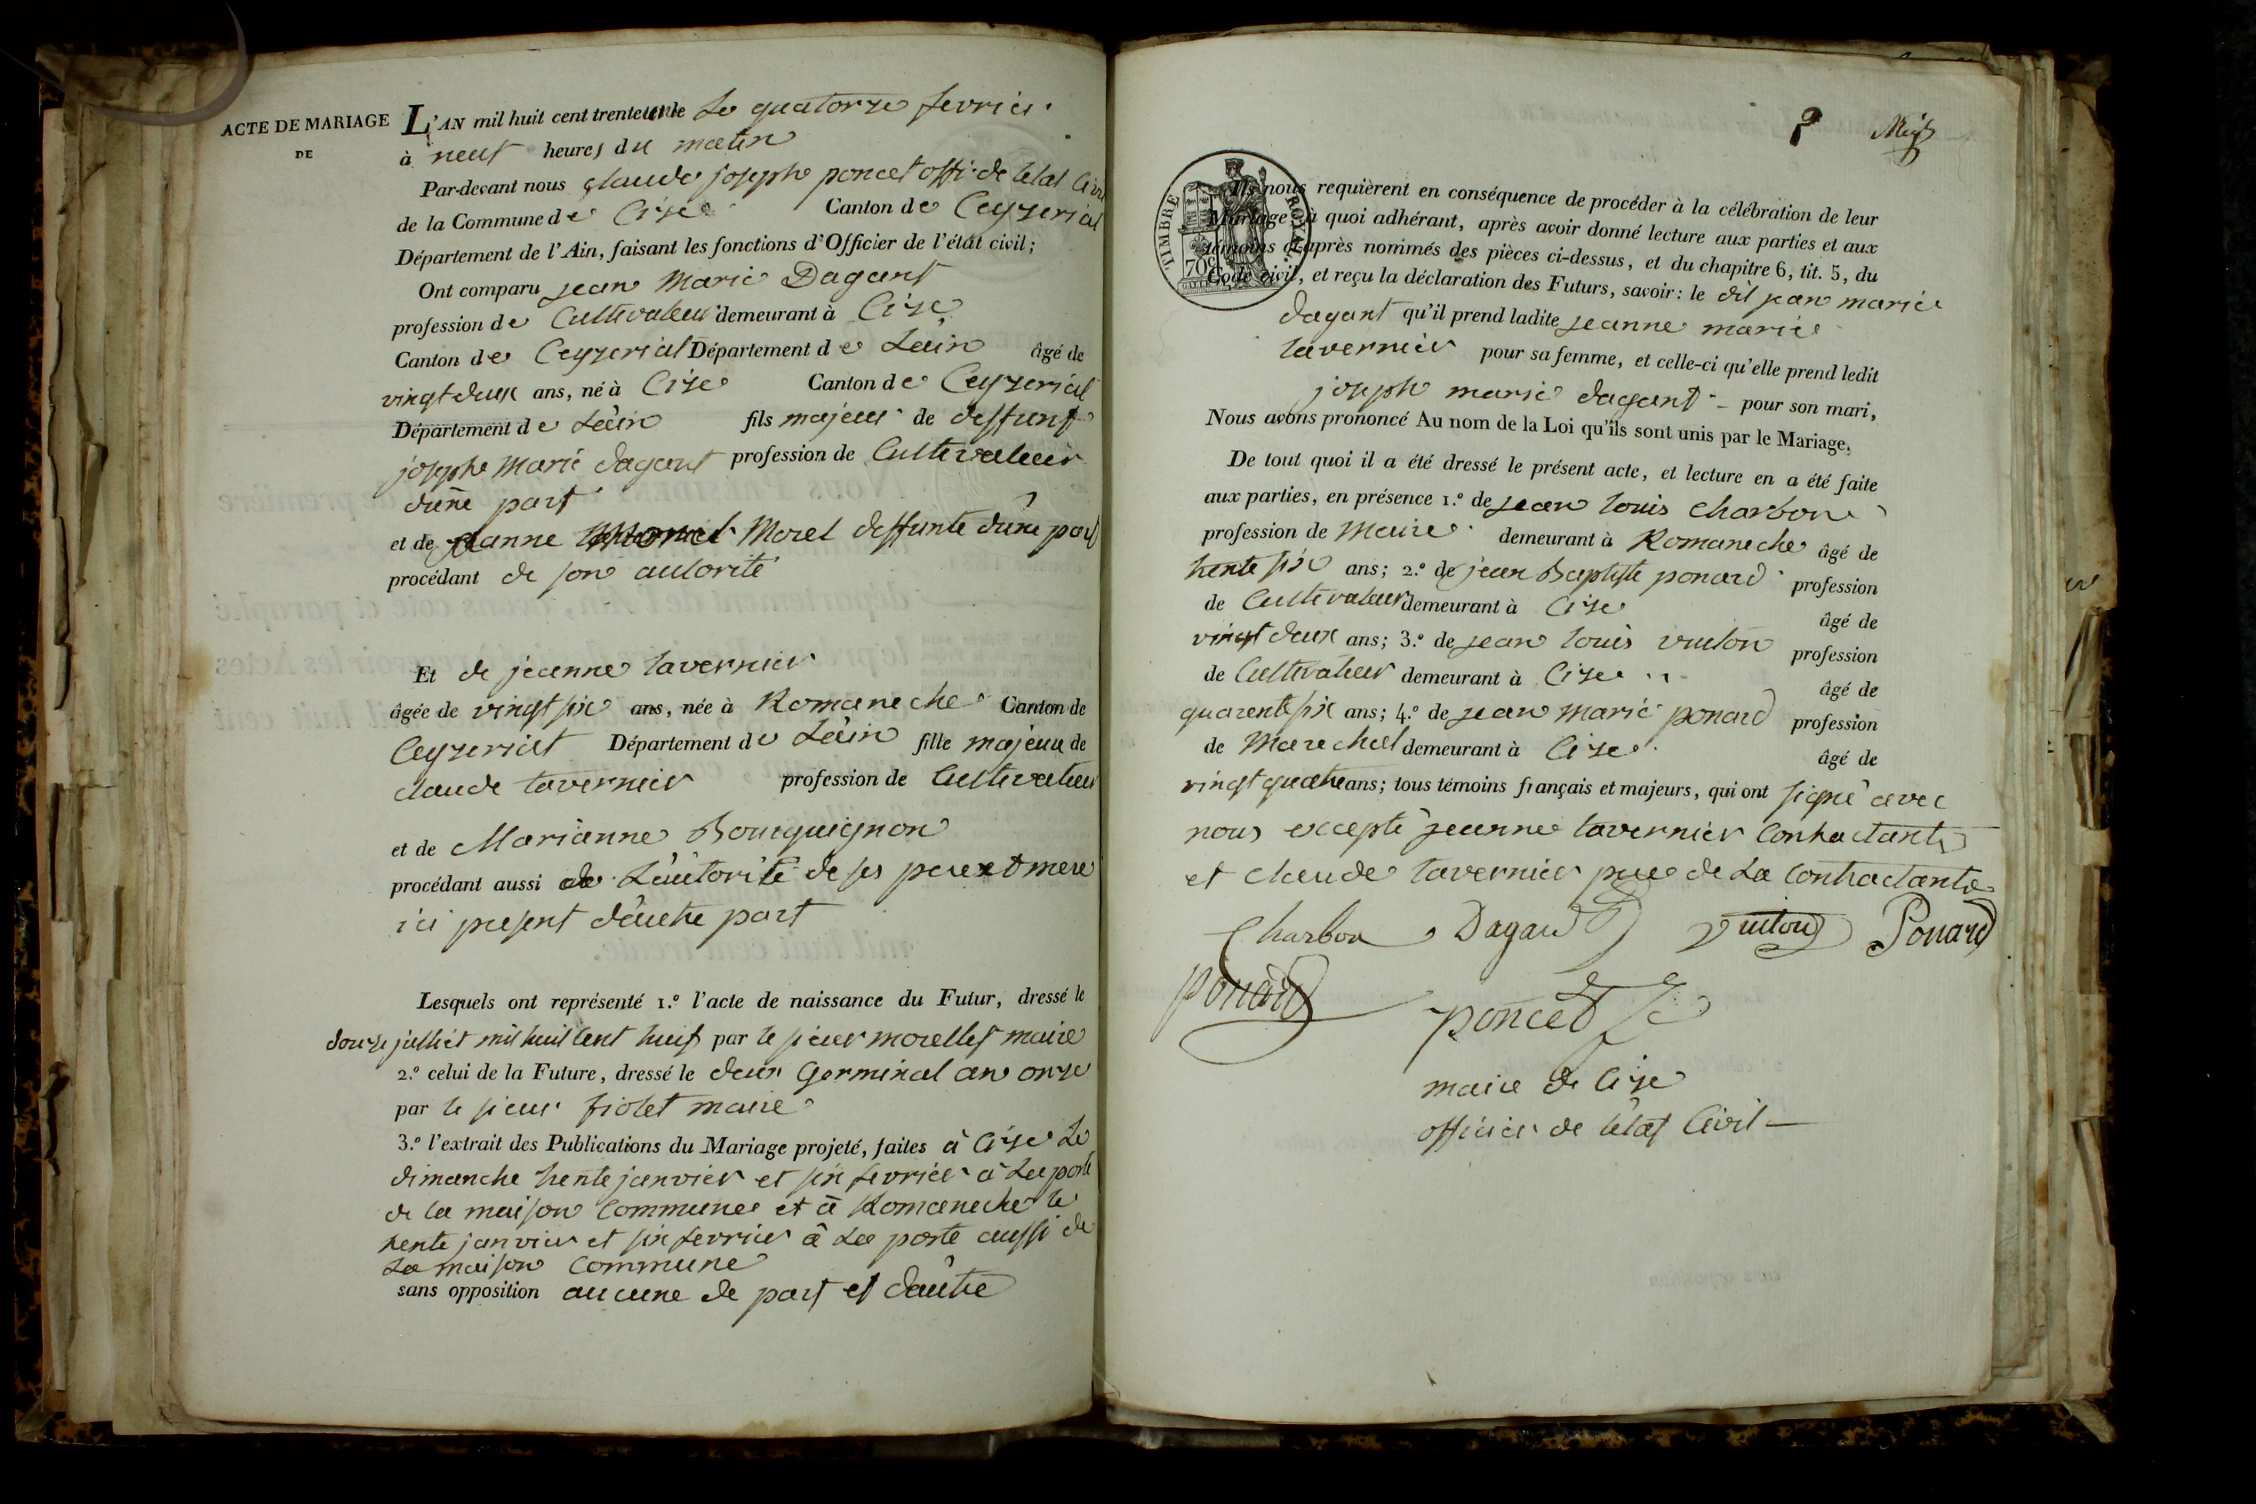 ACTE DE MARIAGE
DE
L'AN mil huit cent trente et un le Le quatorze fevrier
à neuf heures du matin
Par-devant nous glaude joseph poncet offi. de letat Civil
de la Commune de Cize Canton de Ceyzeriat
Département de l'Ain, faisant les fonctions d'Officier de l'état civil;
Ont comparu jean Marie Dagant
profession de Cultivateur demeurant à Cize
Canton de Ceyzeriat Département de Lain âgé de
vingt deux ans, né à Cize Canton de Ceyzeriat
Département de Lain fils majeur de deffunt
joseph Marie dagant profession de Cultivateur
dune part
et de jeanne Morel deffunte dune part
procédant de son autorité
Et de jeanne tavernier
âgée de vingt six ans, née à Romaneche Canton de
Ceyzeriat Département de Lain fille majeure de
claude tavernier profession de Cultivateur
et de Marianne Bourguignon
procédant aussi de Lautorité de ses pere et mere
ici present dautre part
Lesquels ont représenté 1.º l'acte de naissance du Futur, dressé le
douze julliet mil huit cent huit par le sieur morellet maire
2.º celui de la Future, dressé le deux Germinal an onze
par le sieur fiolet maire
3.º l'extrait des Publications du Mariage projeté, faites à Cize Le
dimanche trente janvier et six fevrier à La porte
de la maison Commune et à Romaneche le
trente janvier et six fevrier à La porte aussi de
La maison Commune
sans opposition aucune de part et dautre
TIMBRE ROYAL
70c
Ils nous requièrent en conséquence de procéder à la célébration de leur
Mariage; à quoi adhérant, après avoir donné lecture aux parties et aux
témoins ci-après nommés des pièces ci-dessus, et du chapitre 6, tit. 5, du
Code civil, et reçu la déclaration des Futurs, savoir: le dit jean marie
dagant qu'il prend ladite jeanne marie
tavernier pour sa femme, et celle-ci qu'elle prend ledit
joseph marie dagant – pour son mari,
Nous avons prononcé Au nom de la Loi qu'ils sont unis par le Mariage,
De tout quoi il a été dressé le présent acte, et lecture en a été faite
aux parties, en présence 1.º de jean louis charbon
profession de Maire demeurant à Romaneche âgé de
trente six ans; 2.º de jean Baptiste ponard profession
de Cultivateur demeurant à Cize âgé de
vingt deux ans; 3.º de jean louis vuiton profession
de Cultivateur demeurant à Cize âgé de
quarente six ans; 4.º de jean marie ponard profession
de Marechal demeurant à Cize âgé de
vingt quatre ans; tous témoins français et majeurs, qui ont signé avec
nous excepté jeanne tavernier Contractante
et claude tavernier pere de La Contractante
Charbon Dagand Vuiton Ponard
ponard
poncet
maire de Cize
officier de létat Civil –